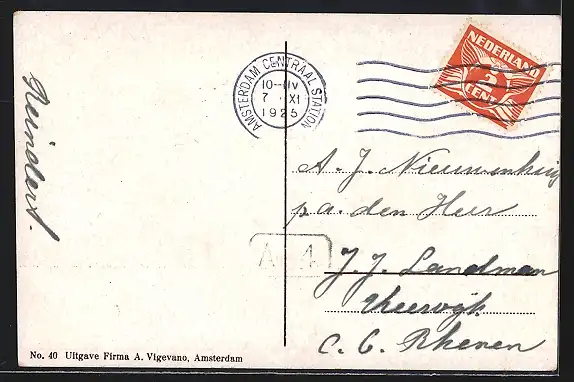 Reindert.
AMSTERDAM CENTRAAL STATION
10-11V
7 XI
1925
NEDERLAND
2
CENT
A. J. Nieuwenhuis
p.a. den Heer
A 4
J. J. Landman
C. G. Rhenen
No. 40 Uitgave Firma A. Vigevano, Amsterdam